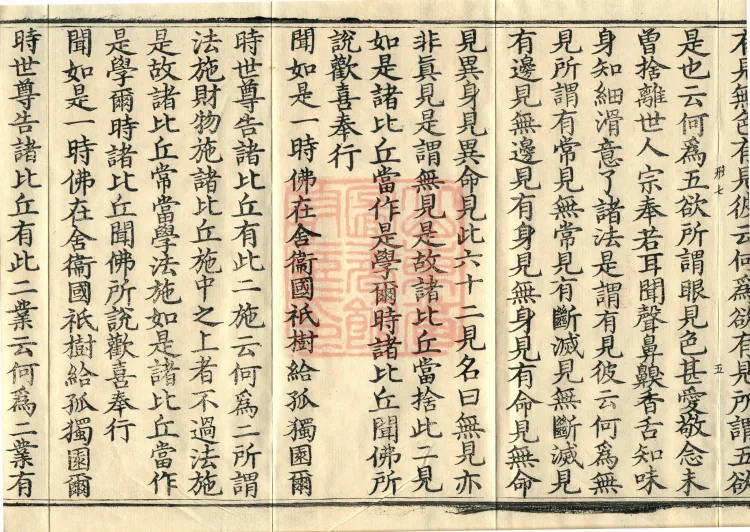 有見無色有見彼云何為欲有見所謂五欲
是也云何為五欲所謂眼見色甚愛敬念未
曾捨離世人宗奉若耳聞聲鼻齅香舌知味
身知細滑意了諸法是謂有見彼云何為無
見所謂有常見無常見有斷滅見無斷滅見
有邊見無邊見有身見無身見有命見無命
見異身見異命見此六十二見名曰無見亦
非真見是謂無見是故諸比丘當捨此二見
如是諸比丘當作是學爾時諸比丘聞佛所
說歡喜奉行
聞如是一時佛在舍衞國祇樹給孤獨園爾
時世尊告諸比丘有此二施云何為二所謂
法施財物施諸比丘施中之上者不過法施
是故諸比丘常當學法施如是諸比丘當作
是學爾時諸比丘聞佛所說歡喜奉行
聞如是一時佛在舍衞國祇樹給孤獨園爾
時世尊告諸比丘有此二業云何為二業有
形七
五